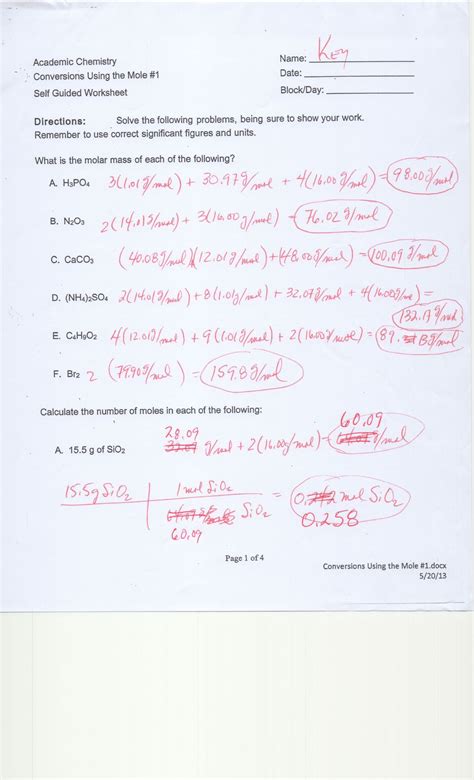 Academic Chemistry
Name: Key
Conversions Using the Mole #1
Date:
Self Guided Worksheet
Block/Day:
Directions: Solve the following problems, being sure to show your work.
Remember to use correct significant figures and units.
What is the molar mass of each of the following?
A. H3PO4 3(1.01 g/mol) + 30.97 g/mol + 4(16.00 g/mol) = 98.00 g/mol
B. N2O3 2(14.01 g/mol) + 3(16.00 g/mol) = 76.02 g/mol
C. CaCO3 (40.08 g/mol)(12.01 g/mol) + (48.00 g/mol) = 100.09 g/mol
D. (NH4)2SO4 2(14.01 g/mol) + 8(1.01 g/mol) + 32.07 g/mol + 4(16.00 g/mol) =
132.17 g/mol
E. C4H9O2 4(12.01 g/mol) + 9(1.01 g/mol) + 2(16.00 g/mol) = 89.13 g/mol
F. Br2 2 (79.90 g/mol) = 159.8 g/mol
Calculate the number of moles in each of the following:
60.09
28.09
A. 15.5 g of SiO2 g/mol + 2(16.00 g/mol) = g/mol
15.5g SiO2 1 mol SiO2 = 0. mol SiO2
SiO2 0.258
60.09
Page 1 of 4
Conversions Using the Mole #1.docx
5/20/13